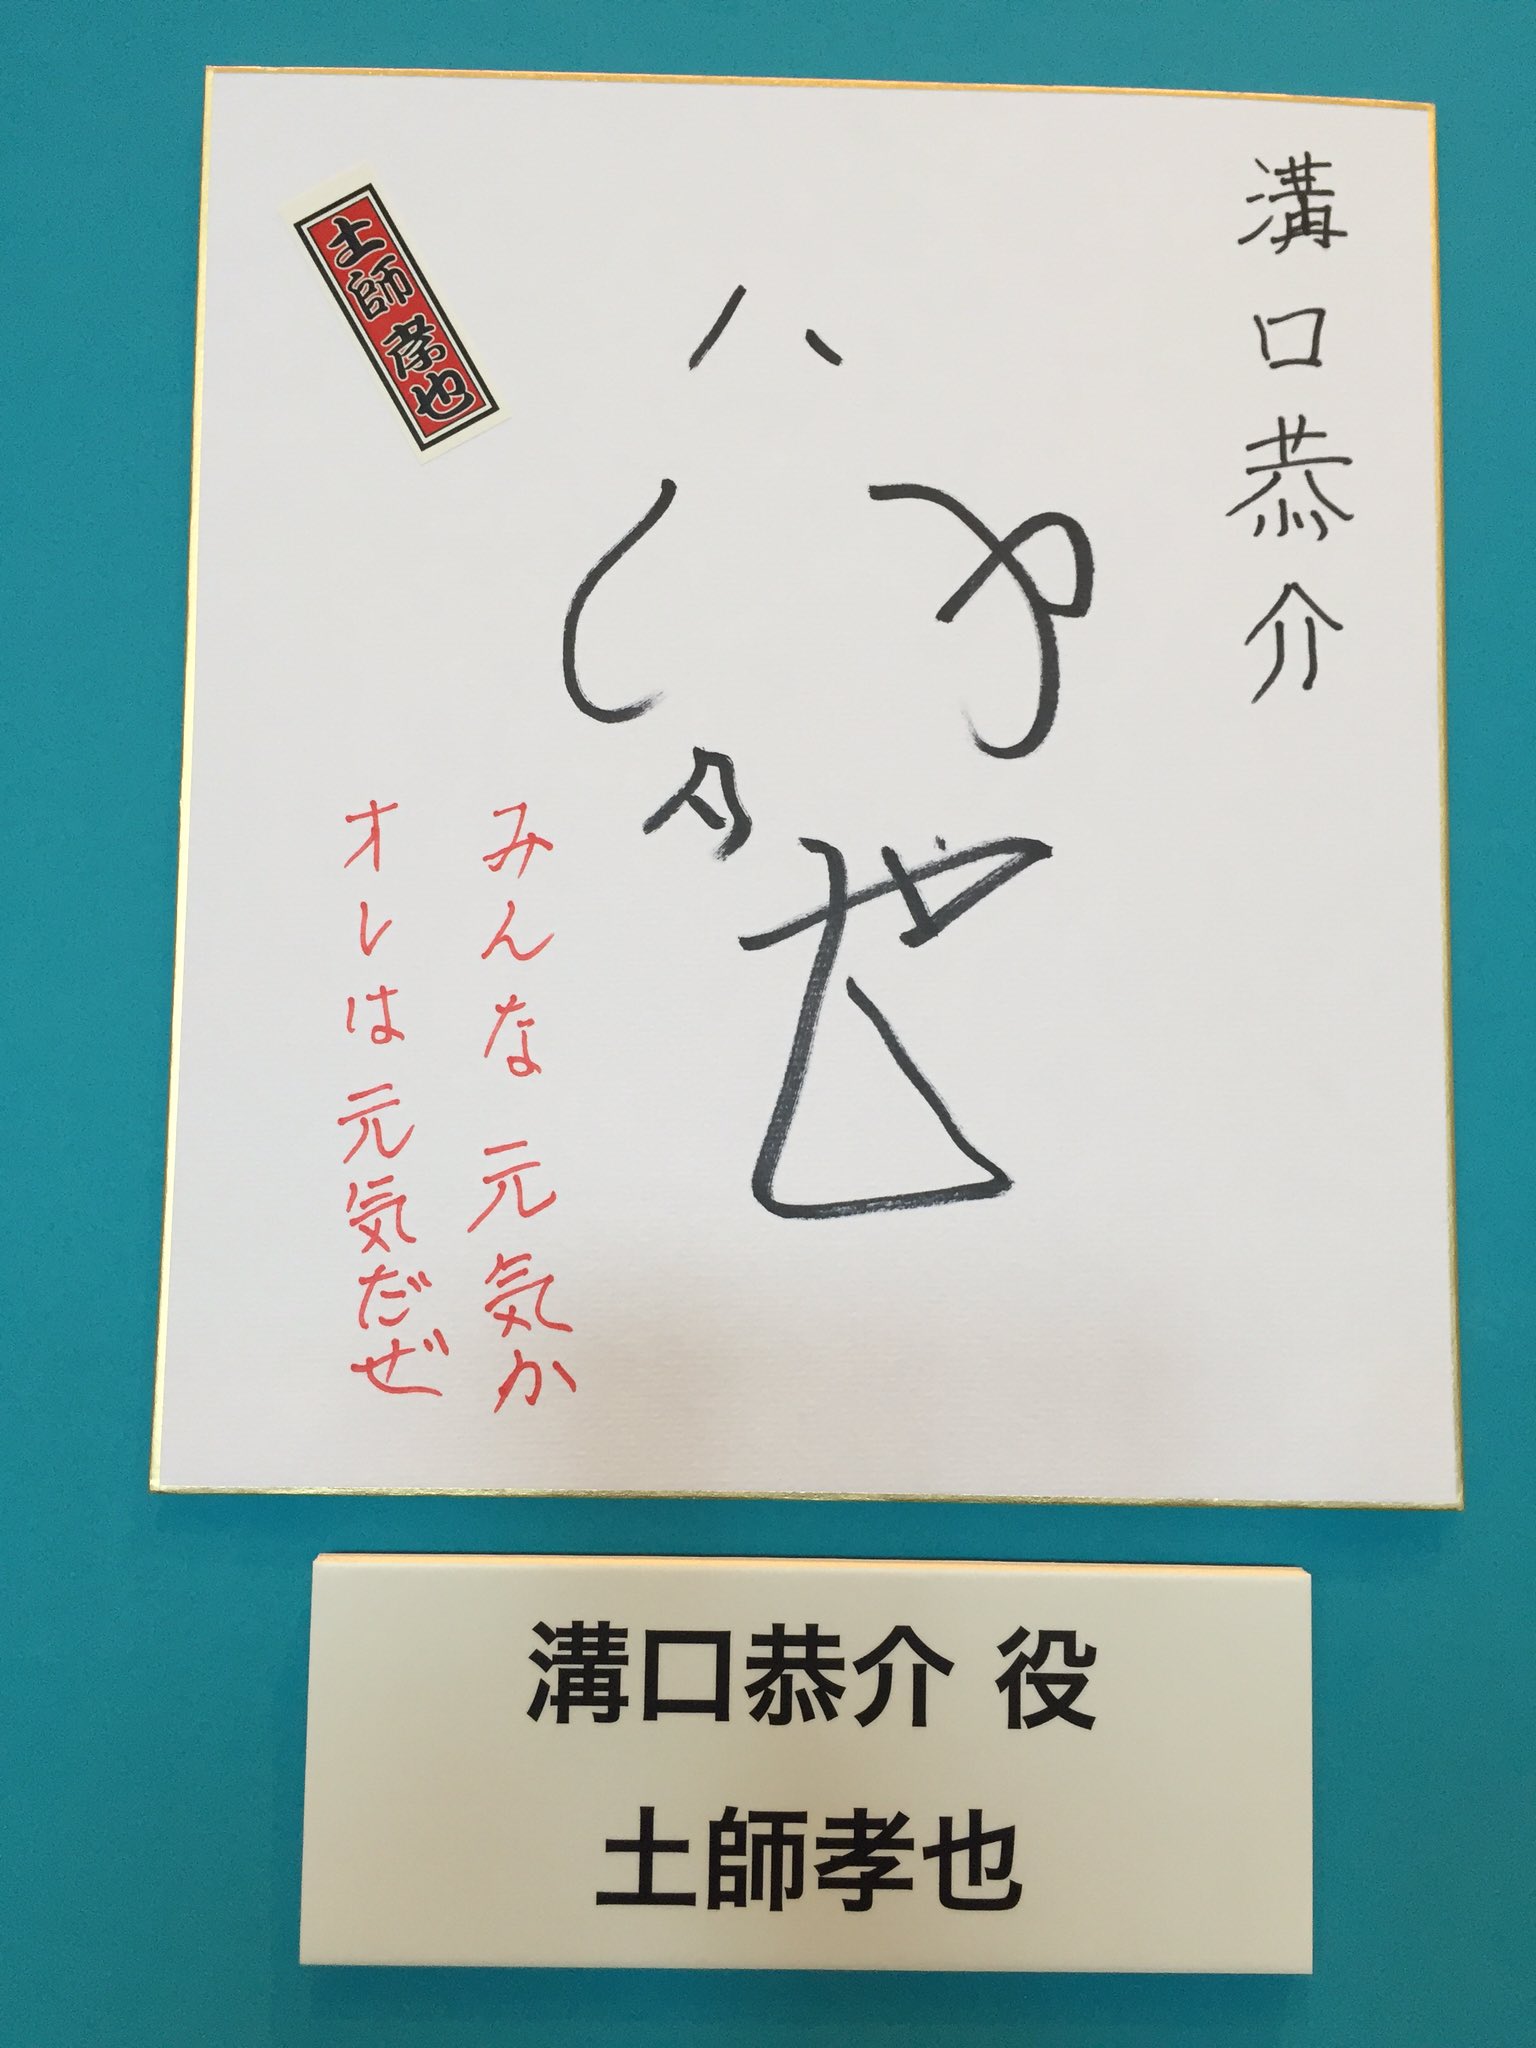 溝口恭介
はじ
たか也
土師孝也
みんな元気か
オレは元気だぜ
溝口恭介 役
土師孝也